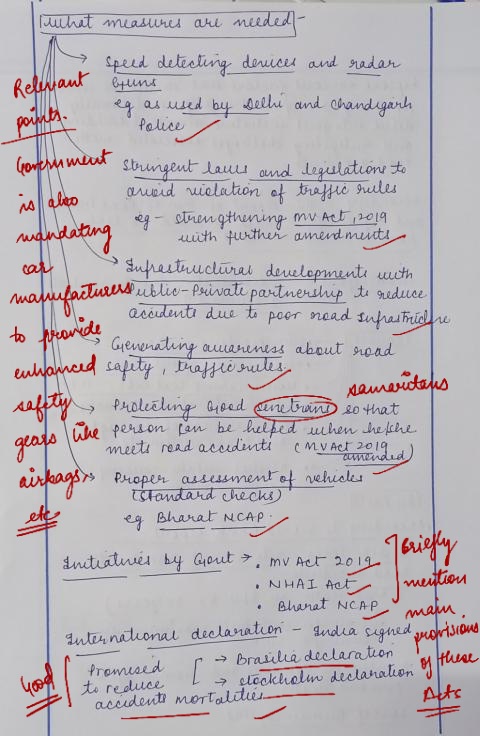 What measures are needed -
Speed detecting devices and radar
Guns
eg as used by Delhi and Chandigarh
Police
Stringent laws and legislations to
avoid violation of traffic rules
eg - strengthening MV Act, 2019
with further amendments
Infrastructural developments with
Public-Private partnership to reduce
accidents due to poor road Infrastructure
Generating awareness about road
safety, traffic rules.
Protecting Good senetrans so that
person can be helped when he/she
meets road accidents (MV Act 2019
amended)
Proper assessment of vehicles
(Standard checks)
eg Bharat NCAP.
Initiatives by Govt → • MV Act 2019
• NHAI Act
• Bharat NCAP
International declaration - India signed
Promised
to reduce
accidents mortalities
[ → Brasilia declaration
→ Stockholm declaration
Relevant
points.
Government
is also
mandating
car
manufacturers
to provide
enhanced
safety
gears like
airbags
etc
samaritans
Briefly
mention
main
provisions
of these
Acts
Good